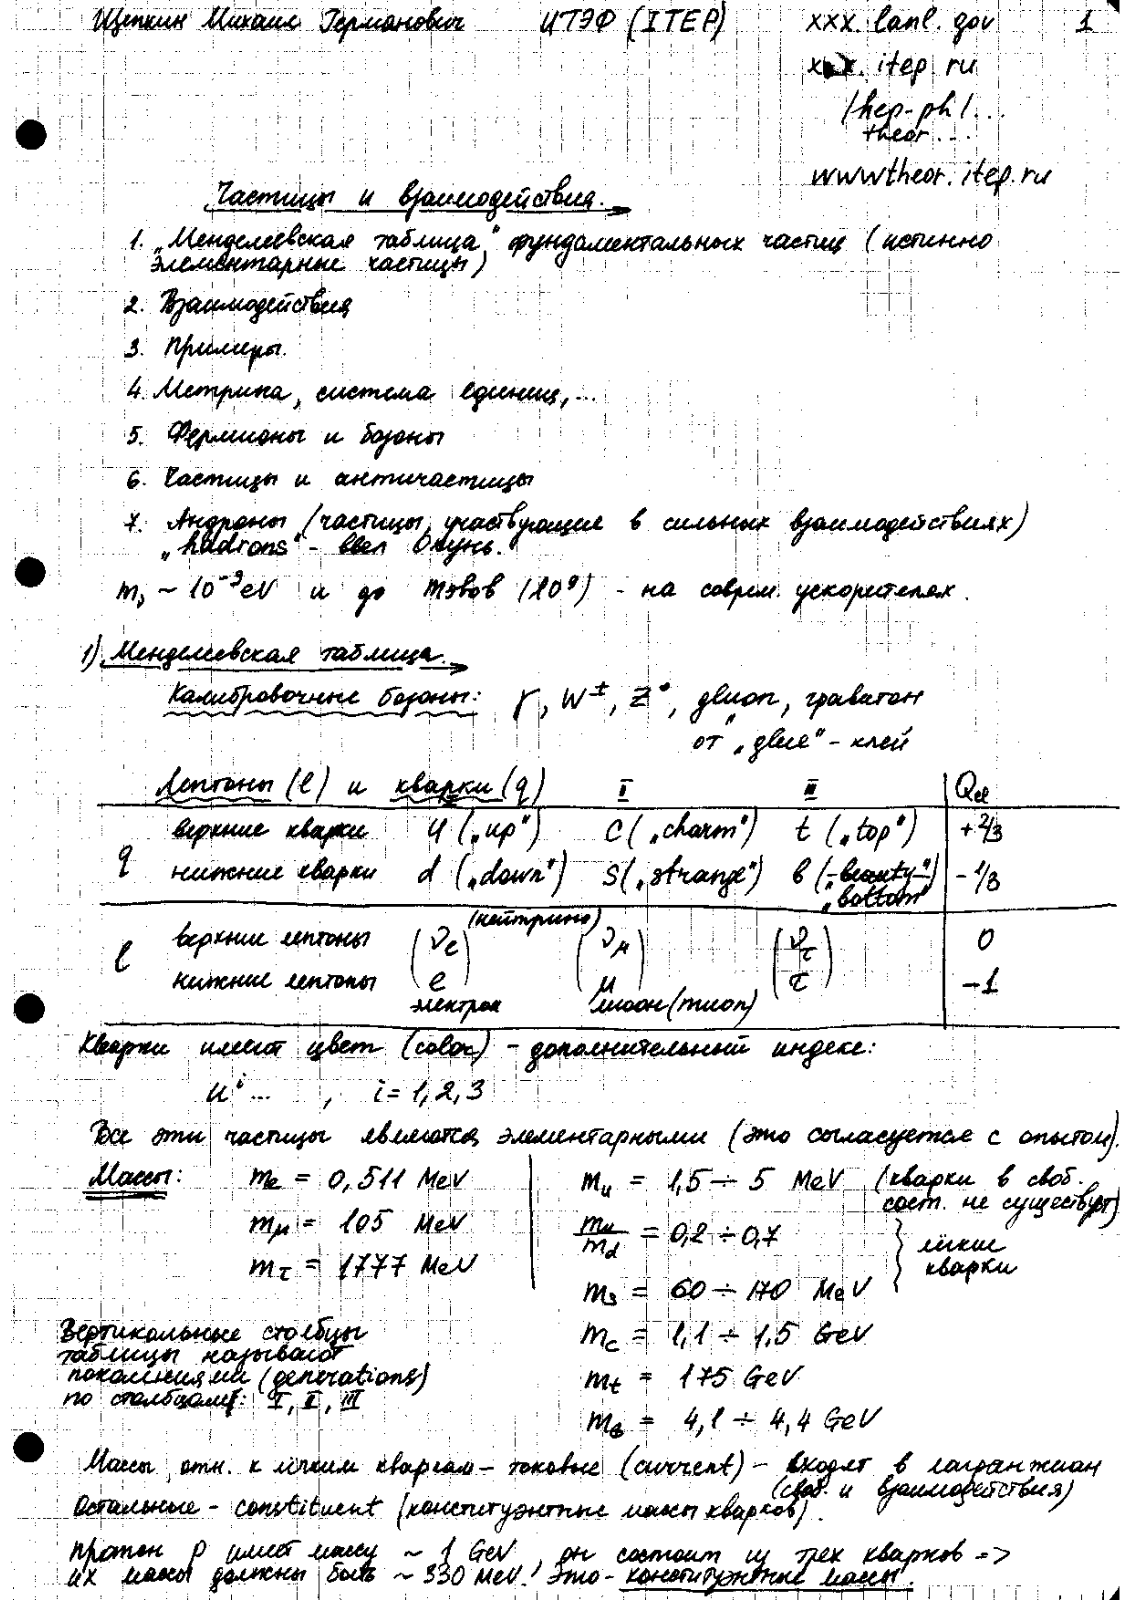 Щепкин Михаил Германович ИТЭФ (ITEP) xxx.lanl.gov 1
xxx.itep.ru
/hep-ph/...
theor...
wwwtheor.itep.ru
Частицы и взаимодействия.
1. „Менделеевская таблица" фундаментальных частиц (истинно
элементарные частицы)
2. Взаимодействия
3. Примеры.
4. Метрика, система единиц,...
5. Фермионы и бозоны
6. Частицы и античастицы
7. Андроны (частицы, участвующие в сильных взаимодействиях)
„hadrons" - ввел Окунь.
m, ~ 10⁻³ eV и до тэвов (10⁹) - на соврем. ускорителях.
1) Менделеевская таблица.
Калибровочные бозоны: γ, W±, Z⁰, глюон, гравитон
от „глюе" - клей
Лептоны (l) и кварки (q) II III Qel
верхние кварки u („up") c („charm") t („top") +2/3
q нижние кварки d („down") s („strange") b („beauty") -1/3
„bottom"
(нейтрино)
верхние лептоны (νe) (νμ) (ντ) 0
l нижние лептоны e μ τ -1
электрон мюон (muon)
Кварки имеют цвет (color) - дополнительный индекс:
uⁱ ... , i = 1, 2, 3
Все эти частицы являются элементарными (это согласуется с опытом).
Массы: me = 0,511 MeV mu = 1,5 ÷ 5 MeV (кварки в своб.
сост. не существуют)
mμ = 105 MeV mu/md = 0,2 ÷ 0,7 лёгкие
кварки
mτ = 1777 MeV
ms = 60 ÷ 170 MeV
Вертикальные столбцы mc = 1,1 ÷ 1,5 GeV
таблицы называют
поколениями (generations) mt = 175 GeV
по столбцам: I, II, III
mb = 4,1 ÷ 4,4 GeV
Массы отн. к лёгким кваркам - токовые (current) - входят в лагранжиан
(своб. и взаимодействия)
Остальные - constituent (конституэнтные массы кварков).
Протон p имеет массу ~ 1 GeV, он состоит из трёх кварков =>
их массы должны быть ~ 330 MeV! Это - конституэнтные массы.